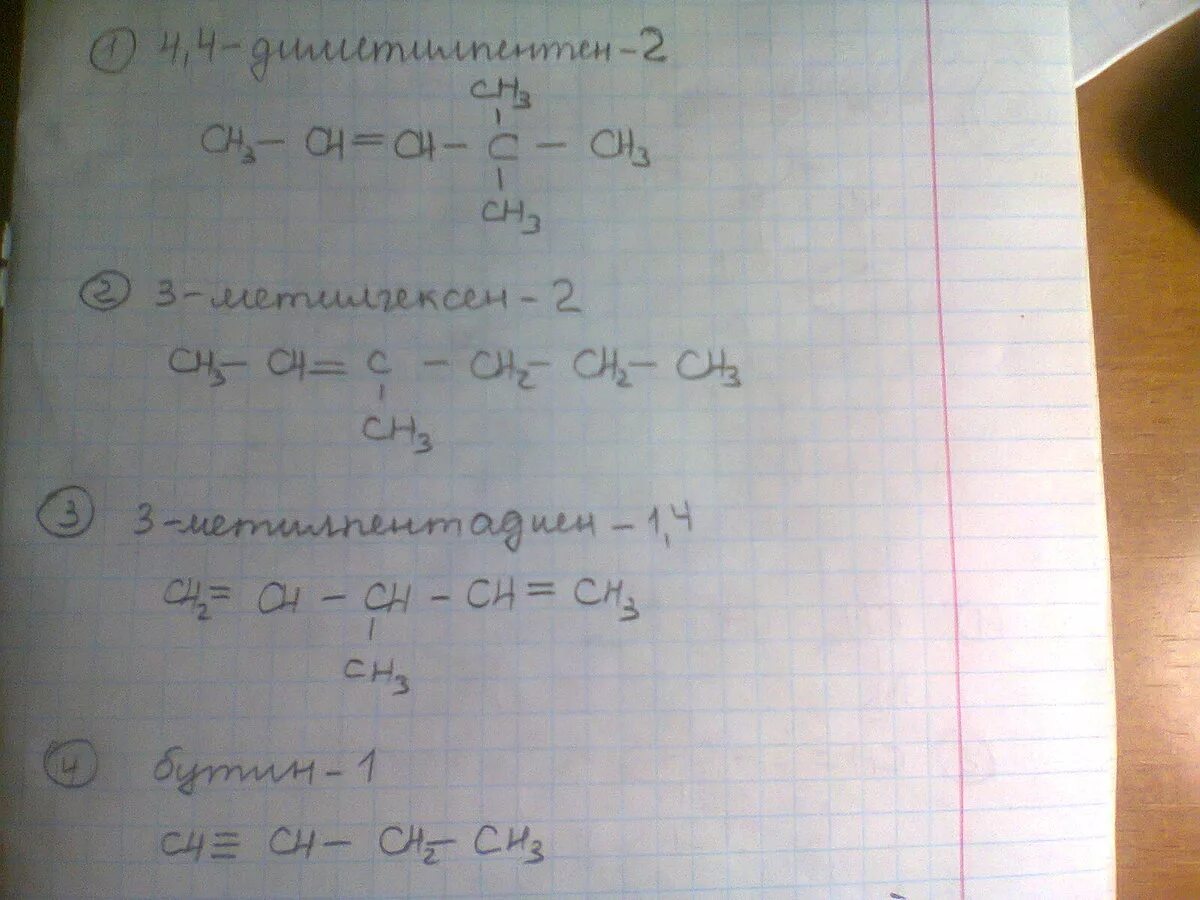 ① 4,4-диметилпентен-2
CH₃
CH₃ — CH = CH — C — CH₃
CH₃
② 3-метилгексен-2
CH₃ — CH = C — CH₂ — CH₂ — CH₃
CH₃
③ 3-метилпентадиен-1,4
CH₂ = CH — CH — CH = CH₃
CH₃
④ бутин-1
CH ≡ CH — CH₂ — CH₃